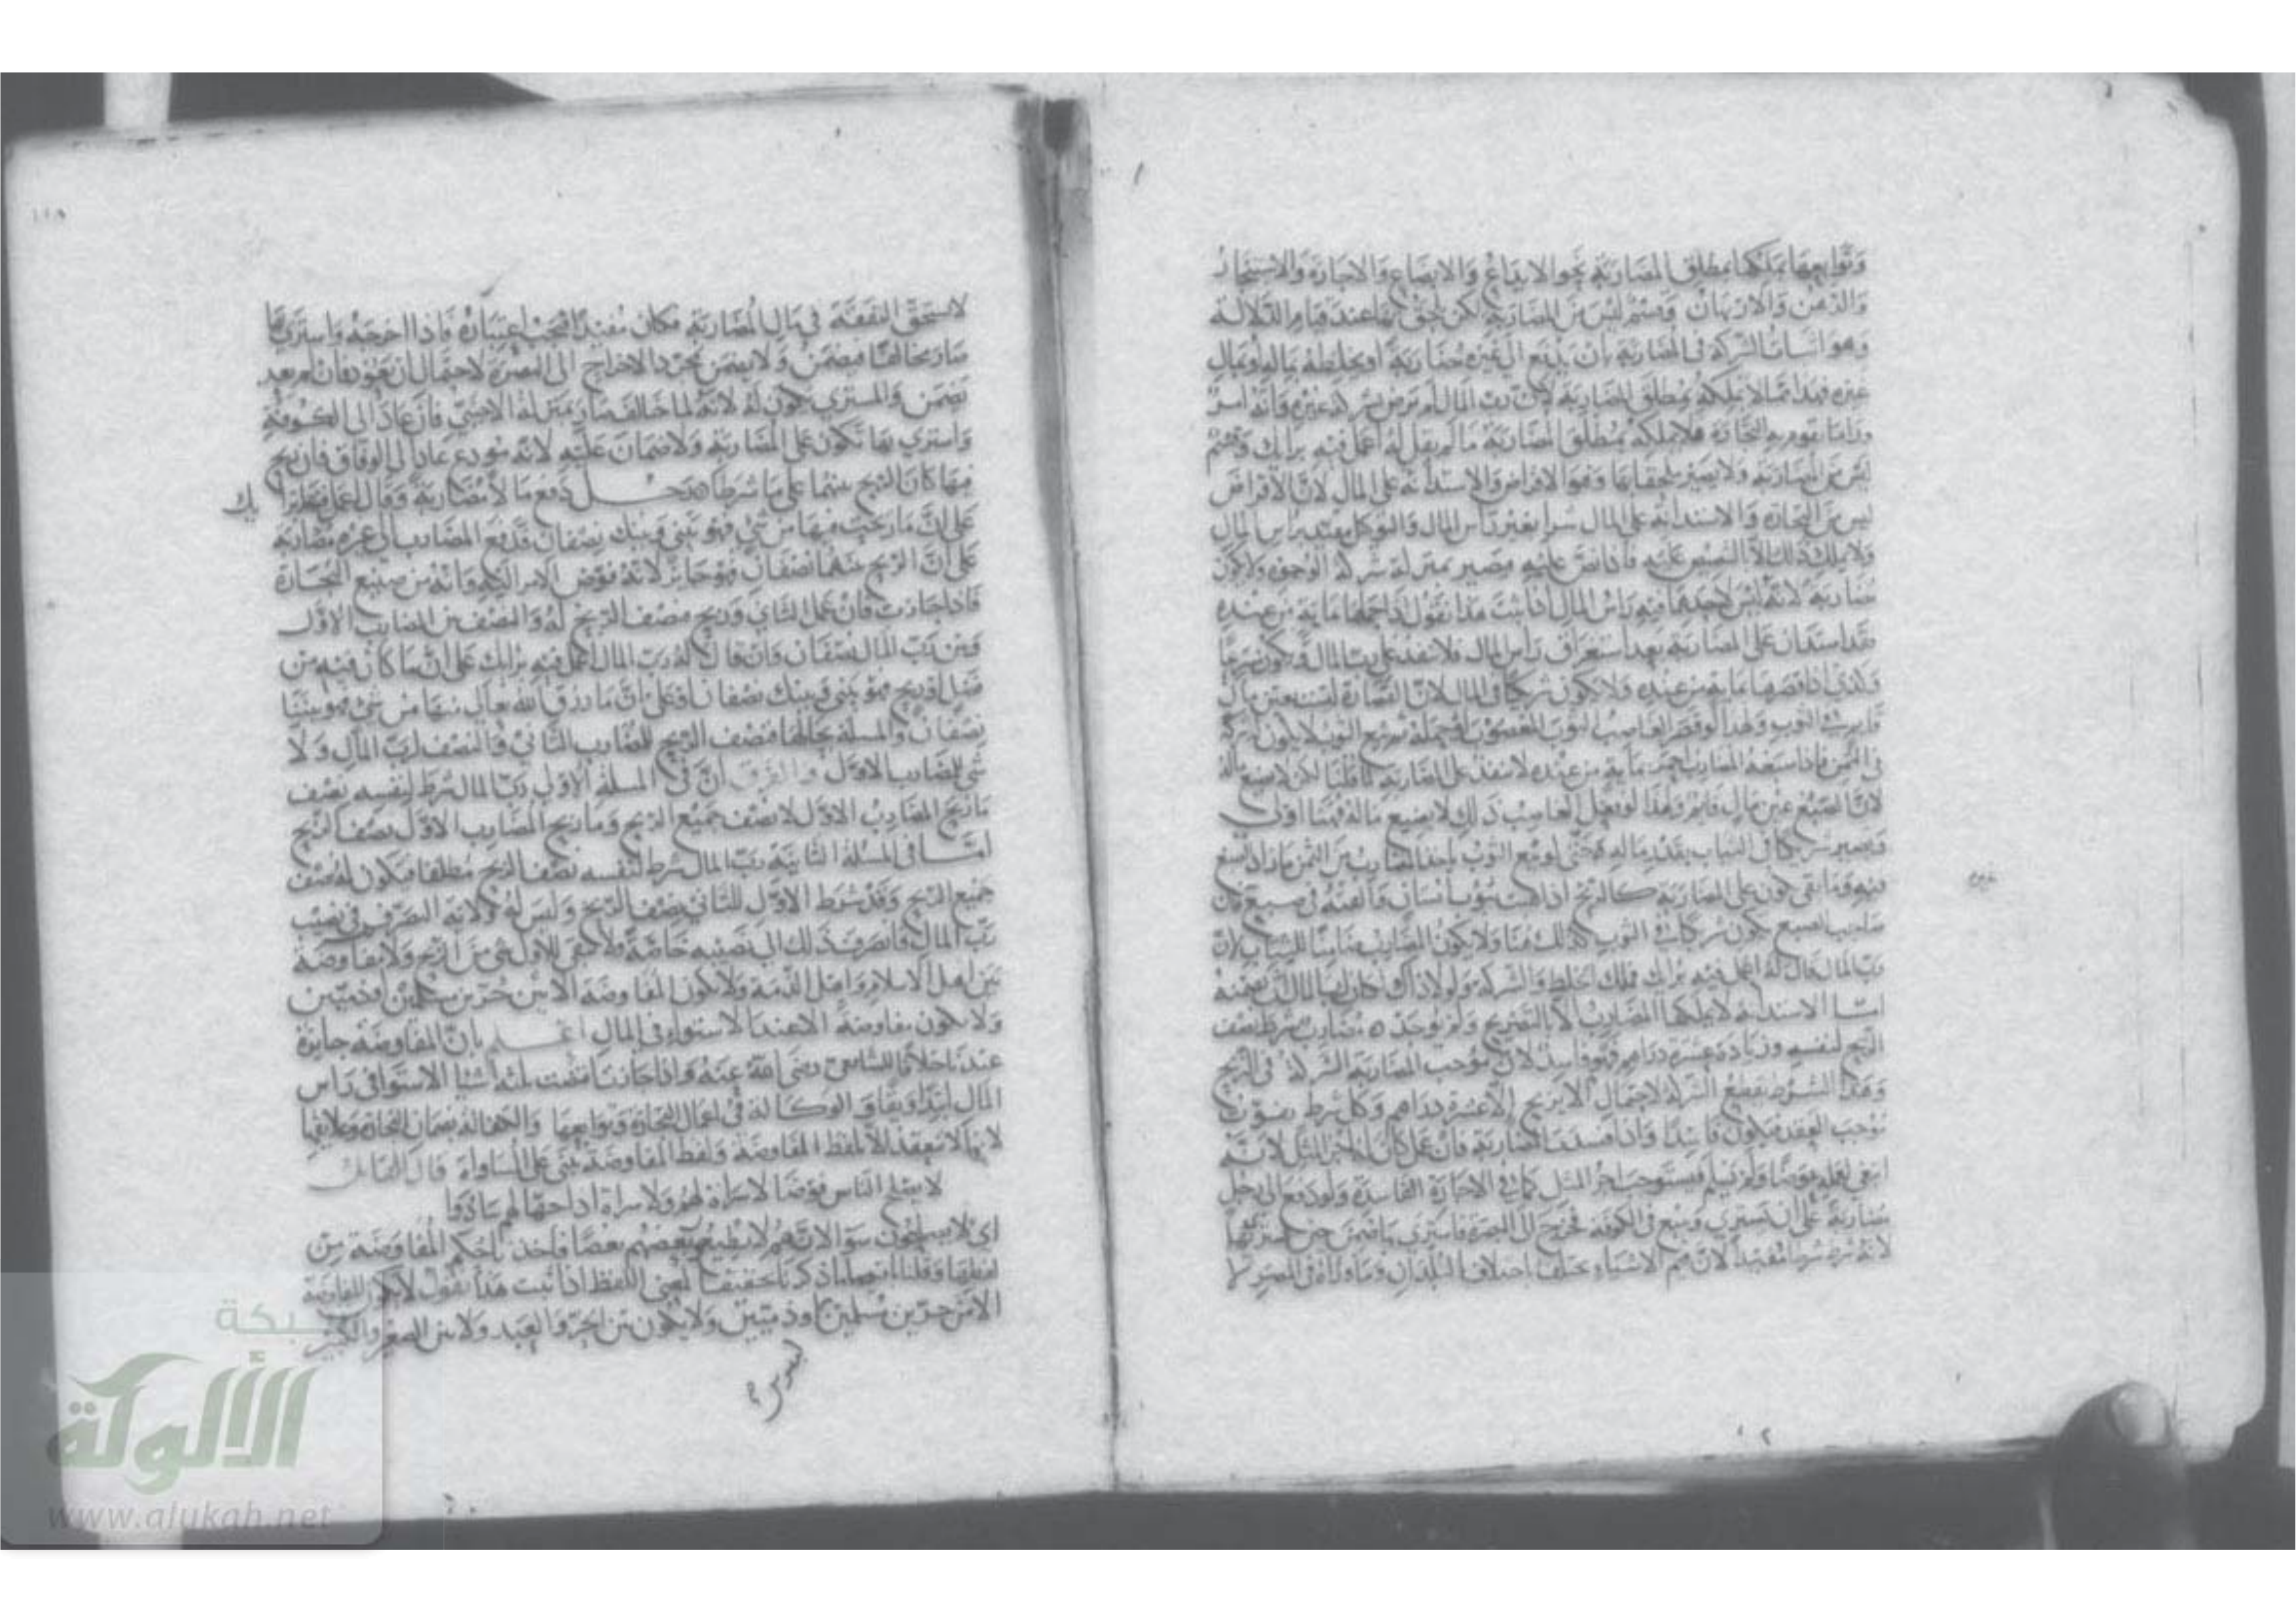 وتوابعها يملكها بمطلق المضاربة نحو الايداع والابضاع والاجارة والاستيجار
والرهن والارتهان وقسم ليس من المضاربة لكن يلحق بها عند قيام الدلالة
وهو اثبات الشركة في المضاربة بان يدفع الى غيره مضاربة او يخلطه بماله او بمال
غيره فهذا مما لا يملكه بمطلق المضاربة لان رب المال لم يرض بشركة غيره وانه امر
وراء ما تقوم به التجارة فلا يملكه بمطلق المضاربة ما لم يقل له اعمل فيه برايك وقسم
ليس من المضاربة ولا يصير ملحقا بها وهو الاقراض والاستدانة على المال لان الاقراض
ليس من التجارة والاستدانة على المال شرا بغير راس المال والتوكيل مقيد براس المال
ولا يملك ذلك الا بالتنصيص عليه فاذا نص عليه يصير بمنزلة شركة الوجوه ولا يكون
مضاربة لانه ليس لاحدهما فيه راس المال اذا ثبت هذا نقول اذا حملها بماية من عنده
فقد استدان على المضاربة بعد استغراق راس المال فلا ينفذ على رب المال
وكذلك اذا قصرها بماية من عنده ولا يكون شريكا في المال لان القصارة ليست بعين مال
قايم في الثوب ولهذا لو قصر الغاصب الثوب المغصوب
في الثمن فاذا صبغه المضارب احمر بماية من عنده لا ينفذ على المضاربة لما قلنا لكن لا يضيع ماله
لان الصبغ عين مال قايم ولهذا لو فعل الغاصب ذلك لا يضيع ماله فهنا اولى
ويصير شريكا في الثياب بقدر ماله حتى لو بيع الثوب ياخذ المضارب من الثمن ما زاد الصبغ
فيه وما بقي يكون على المضاربة كالريح اذا هبت بثوب انسان والقته في صبغ
صاحب الصبغ يكون شريكا في الثوب كذلك هنا ولا يكون المضارب ضامنا للثياب لان
رب المال قال له اعمل فيه برايك فملك الخلط والشركة ولولا ذلك
اما الاستدانة لا يملكها المضارب الا بالتصريح ولم يوجد ه مضارب شرط نصف
الربح لنفسه وزيادة عشرة دراهم فهو فاسد لان موجب المضاربة الشركة في الربح
وهذا الشرط يقطع الشركة لاحتمال الا يربح الا عشرة دراهم وكل شرط يفوت
موجب العقد فيكون فاسدا واذا فسدت المضاربة فان عمل كان له اجر المثل لانه
ابتغى لعمله عوضا ولم يسلم فيستوجب اجر المثل كما في الاجارة الفاسدة ولو دفع الى رجل
مضاربة على ان يشتري ويبيع في الكوفة فخرج الى البصرة فاشترى بها ضمن حين اشترى بها
لانه شرط شرطا مفيدا لان قيم الاشياء تختلف باختلاف البلدان وما دام في المصر
غيره
لا يستحق النفقة في مال المضاربة فكان مفيدا فيجب اعتباره فاذا اخرجه واشترى بها
صار مخالفا فيضمن ولا يضمن بمجرد الاخراج الى البصرة لاحتمال ان يعود فان لم يعد
يضمن والمشترى يكون له لانه لما خالف صار بمنزلة الاجنبي فان عاد الى الكوفة
واشترى بها تكون على المضاربة ولا ضمان عليه لانه مودع عاد الى الوفاق فان ربح
فيها كان الربح بينهما على ما شرطا ه رجل دفع مالا مضاربة وقال اعمل فيه برا يك
على ان ما ربحت فيها من شي فهو بيني وبينك نصفان فدفع المضارب الى غيره مضاربة
على ان الربح بينهما نصفان فهو جايز لانه فوض الامر اليه وانه من صنيع التجارة
فاذا جازت فان عمل الثاني وربح فنصف الربح له والنصف بين المضارب الاول
وبين رب المال نصفان وان قال له رب المال اعمل فيه برايك على ان ما كان فيه من
فضل او ربح فهو بيني وبينك نصفان او على ان ما رزق الله تعالى منها من شي فهو بيننا
نصفان والمسلة بحالها فنصف الربح للمضارب الثاني والنصف لرب المال ولا
شي للمضارب الاول والفرق ان في المسلة الاولى رب المال شرط لنفسه نصف
ما ربح المضارب الاول لا نصف جميع الربح وما ربح المضارب الاول نصف الربح
امـا في المسلة الثانية رب المال شرط لنفسه نصف الربح مطلقا فيكون له نصف
جميع الربح وقد شرط الاول للثاني نصف الربح وليس له ولاية التصرف في نصيب
رب المال فانصرف ذلك الى نصيبه خاصة ولا يبقى للاول شي من الربح ولا مفاوضة
بين اهل الاسلام واهل الذمة ولا يكون المفاوضة الا بين حرين مسلمين او ذميين
ولا يكون مفاوضة الا عند الاستواء في المال اعلم بان المفاوضة جايزة
عندنا خلافا للشافعي رضي الله عنه واذا جازت اقتضت ثلثة اشيا الاستوا في راس
المال ابتداء وبقاء والوكالة في اعمال التجارة وتوابعها والكفالة بضمان التجارة
لانها لا تنعقد الا بلفظ المفاوضة ولفظ المفاوضة يبنى على المساواة قال القايل
لا يصلح الناس فوضا لا سراة لهم ولا سراة اذا جهالهم سادوا
اي لا يصلحون سوا لانهم لا يطيعون بعضهم بعضا فاخذنا حكم المفاوضة من
لفظها وقلنا باقتضا ما ذكرنا تحقيقا لمعنى اللفظ اذا ثبت هذا نقول لا يكون المفاوضة
الا بين حرين مسلمين او ذميين ولا يكون بين الحر والعبد ولا بين الصغير والكبير
شبكة
الألوكة
www.alukah.net